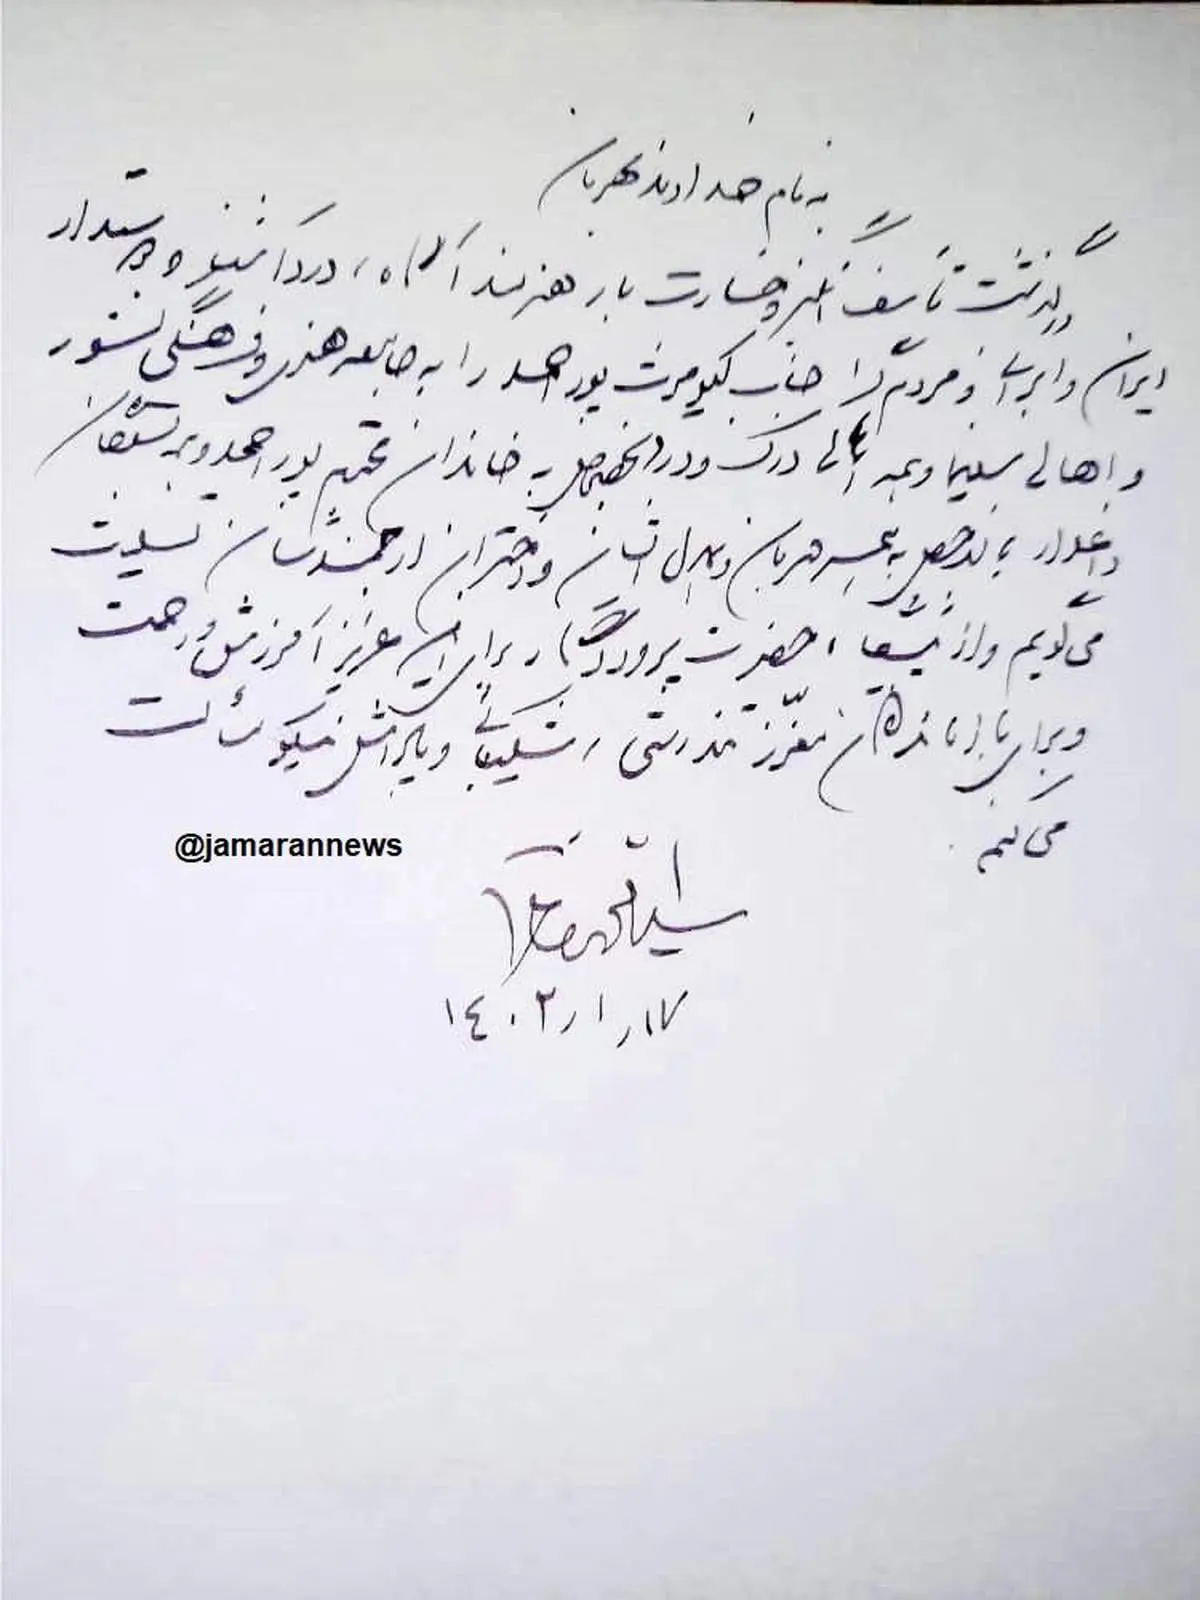 به نام خداوند مهربان
درگذشت تأسف انگیز و خسارت بار هنرمند آگاه، درد آشنا و دوستدار
ایران و ایرانی و مردم گرا جناب کیومرث پوراحمد را به جامعه هنری و فرهنگی کشور
و اهالی سینما و همه اهالی درک و درد بخصوص به خاندان محترم پوراحمد و همه بستگان
داغدار بالاخص به همسر مهربان و همدل ایشان و دختران ارجمندشان تسلیت
می‌گویم و از پیشگاه حضرت پروردگار برای آن عزیز آمرزش و رحمت
و برای بازماندگان معزز تندرستی، شکیبایی و پاداش نیکو مسألت
می‌کنم.
@jamarannews
سید محمد خاتمی
۱۴۰۲/۱/۱۷